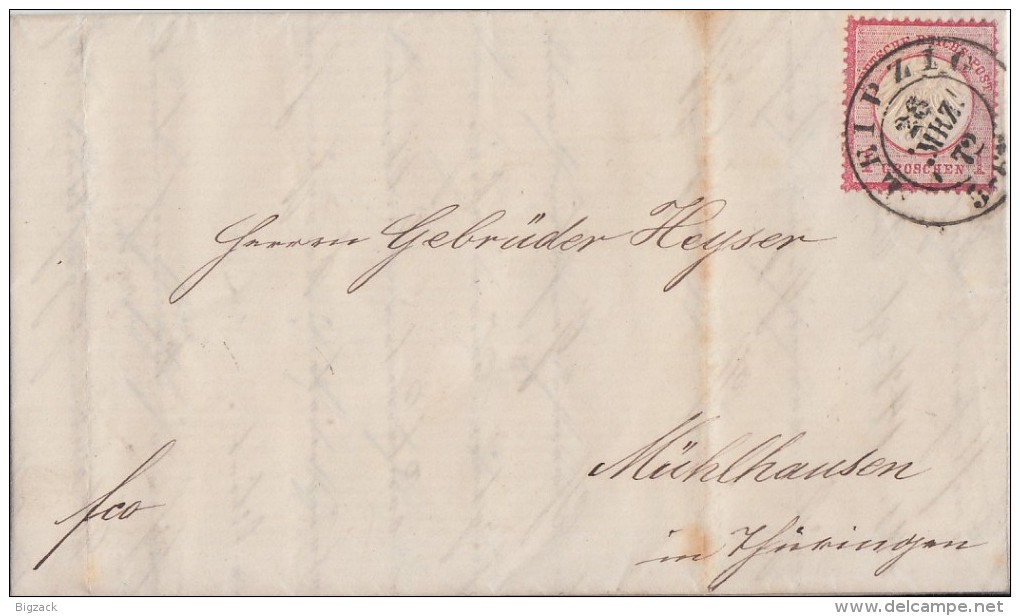 DEUTSCHE REICHS-POST
1 GROSCHEN 1
LEIPZIG
MRZ
72
Herren Gebrüder Heyser
Mühlhausen
in Thüringen
fco
Bigzack
www.delcampe.net